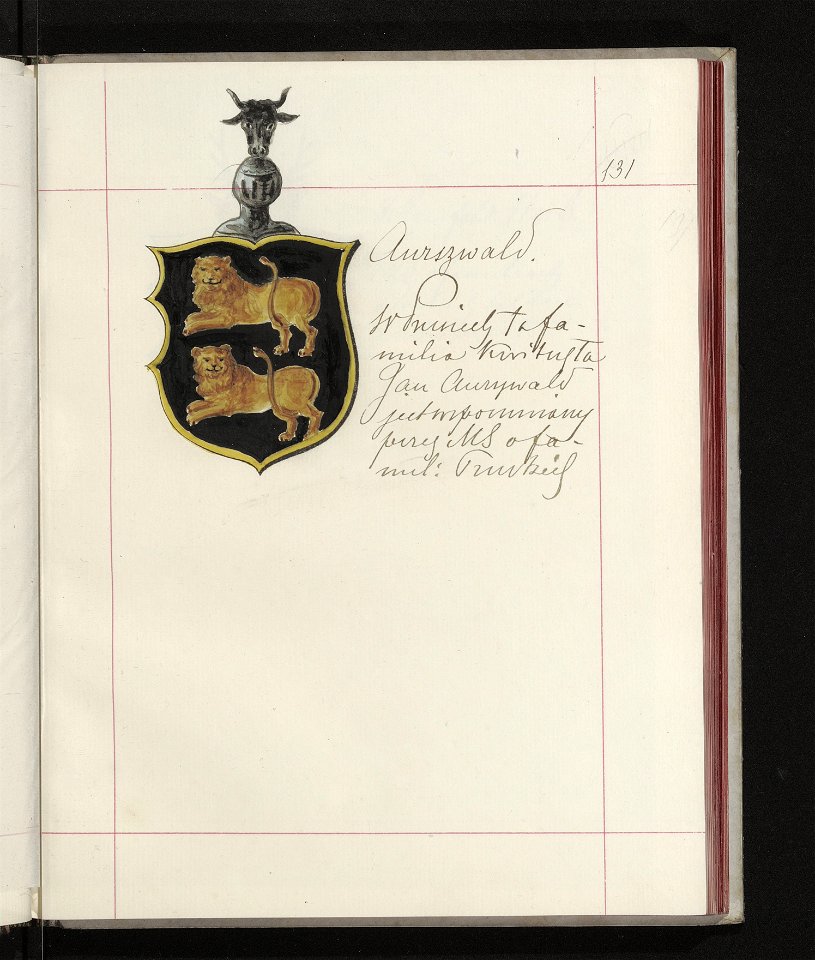 131
Aurszwald.
W Prusiech ta fa-
milia kwitnęła
Jan Aurszwald
jest wspomniany
przez MS o fa-
mil: Pruskich